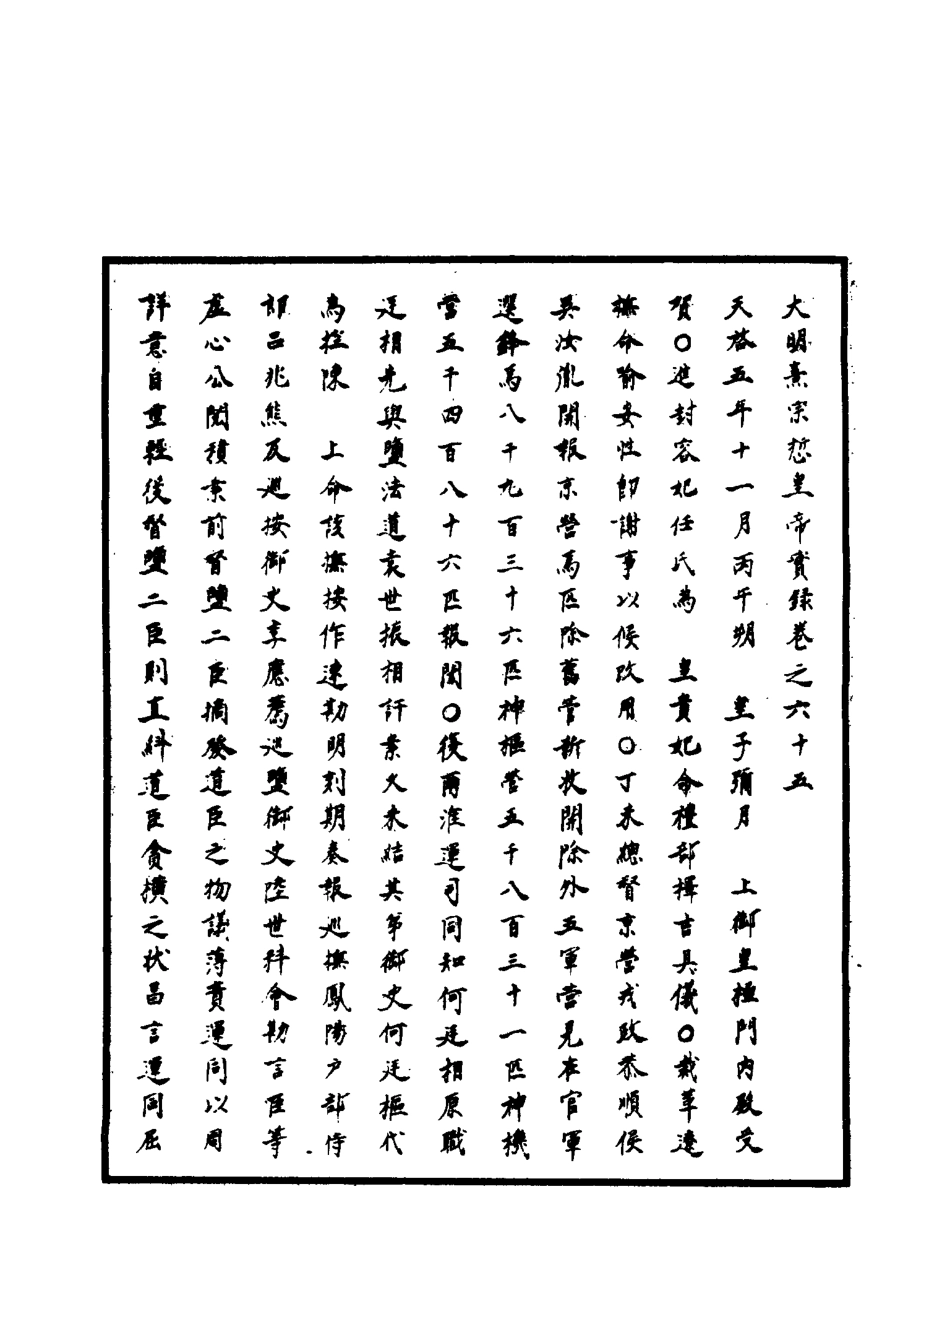 大明熹宗悊皇帝實録卷之六十五
天啓五年十一月丙午朔　皇子彌月　上御皇極門内殿受
賀○進封容妃任氏為　皇貴妃命禮部擇吉具儀○裁革遼
撫命喻安性即謝事以候改用○丁未總督京營戎政恭順侯
吳汝胤開報京營馬匹除舊管新收開除外五軍營見在官軍
選鋒馬八千九百三十六匹神樞營五千八百三十一匹神機
營五千四百八十六匹報聞○復兩淮運司同知何廷相原職
廷相先與鹽法道袁世振相訐案久未結其弟御史何廷樞代
為控陳　上命該撫按作速勘明刻期奏報巡撫鳳陽户部侍
郎吕兆熊及巡按御史李應薦巡鹽御史陸世科會勘言臣等
虚心公閲積案前督鹽二臣摘發道臣之物議薄責運同以周
詳意自重輕後督鹽二臣則直糾道臣貪横之状昌言運同屈